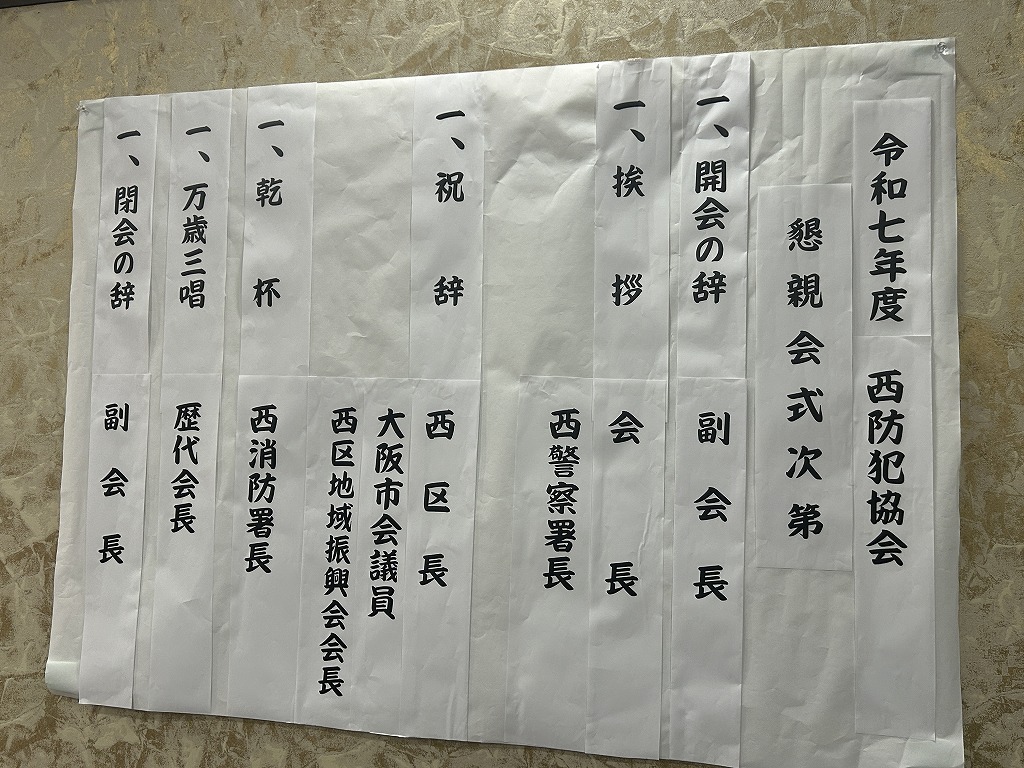 令和七年度 西防犯協会
懇親会式次第
一、開会の辞 副会長
一、挨拶 会長
西警察署長
一、祝辞 西区長
大阪市会議員
西区地域振興会会長
一、乾杯 西消防署長
一、万歳三唱 歴代会長
一、閉会の辞 副会長